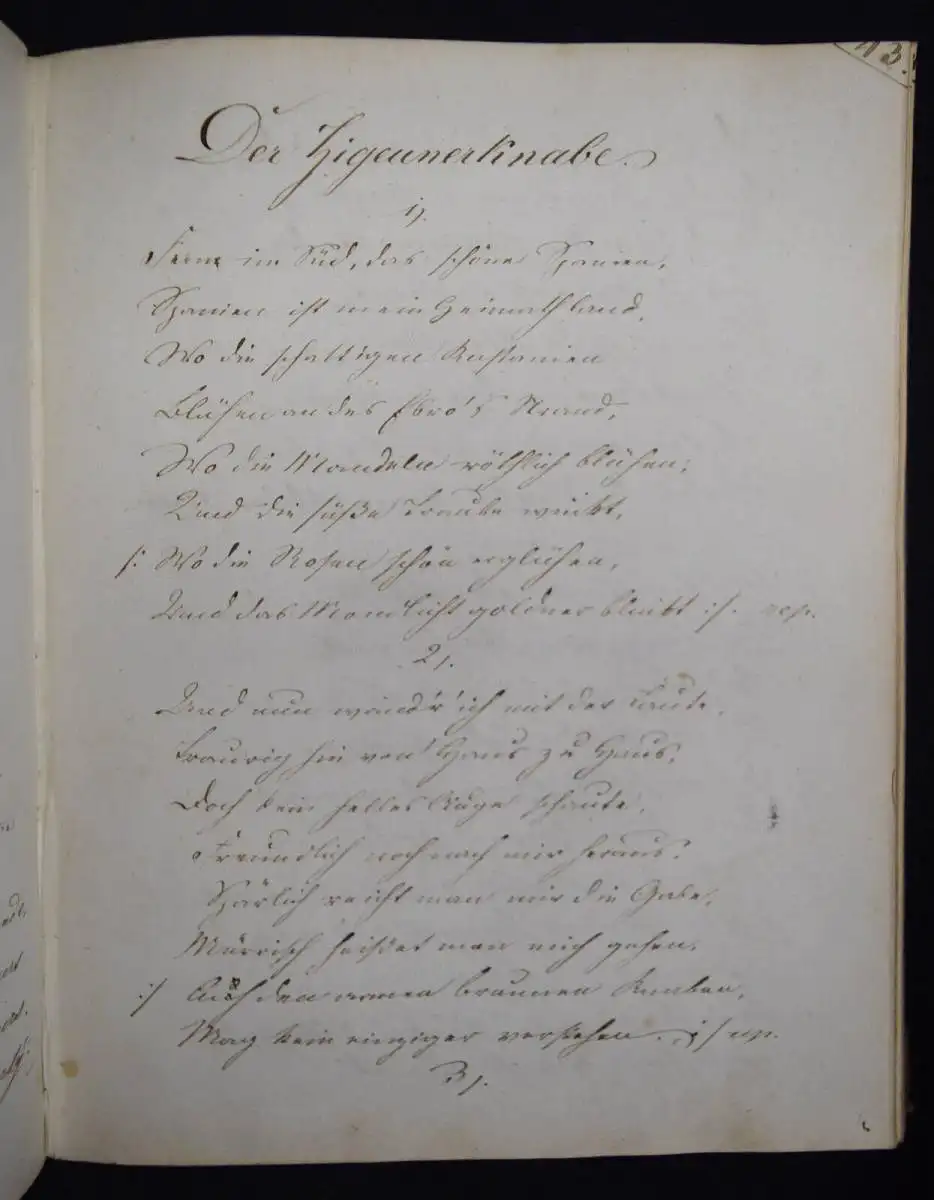 43.
Der Zigeunerknabe.
1).
Ferne im Süd, das schöne Spanien,
Spanien ist mein Heimathland,
Wo die schattigen Kastanien
Blühen an des Ebro's Strand,
Wo die Mandeln röthlich blühen,
Und die süße Traube winkt,
/: Wo die Rosen schön erglühen,
Und das Mondlicht goldner blinkt :/. rep.
2).
Und nun wand'r' ich mit der Laute,
Traurig hin von Haus zu Haus,
Doch kein helles Auge schaute,
Freundlich noch nach mir heraus.
Spärlich reicht man mir die Gabe,
Mürrisch heißet man mich gehen,
:/ Ach den armen braunen Knaben,
Mag kein einziger verstehen. :/ rep.
3).